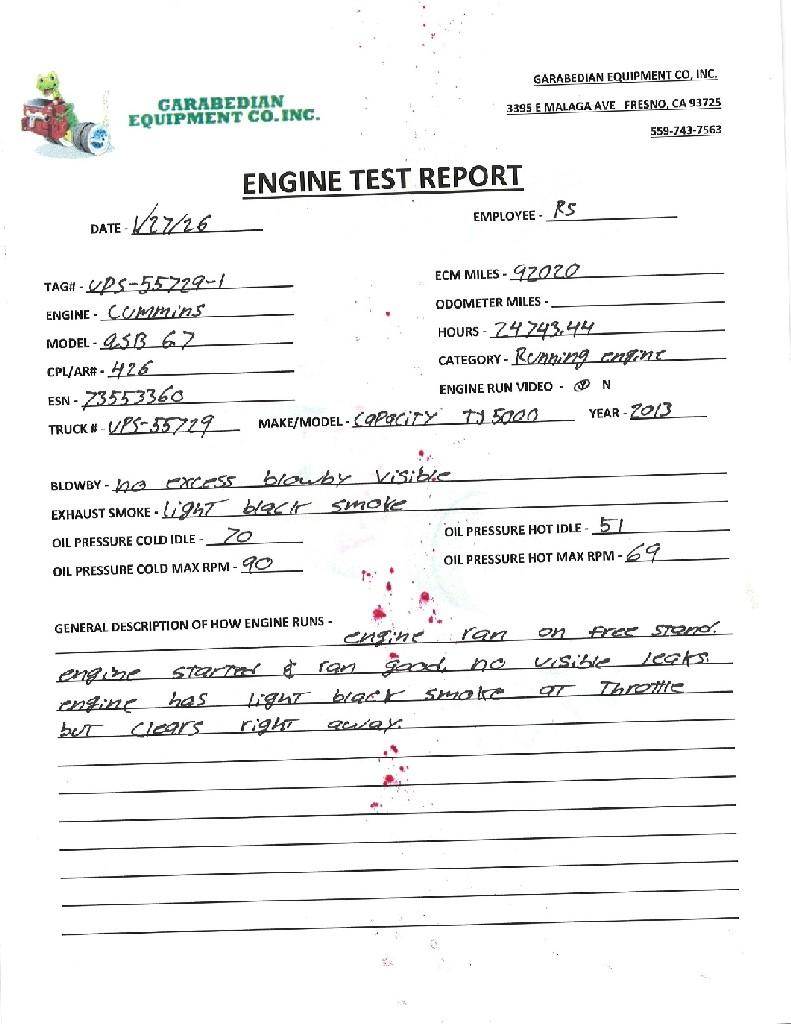 GARABEDIAN EQUIPMENT CO, INC.
GARABEDIAN
EQUIPMENT CO. INC.
3395 E MALAGA AVE FRESNO, CA 93725
559-743-7563
ENGINE TEST REPORT
DATE - 1/27/26 EMPLOYEE - RS
TAG# - UPS-55729-1 ECM MILES - 92020
ENGINE - Cummins ODOMETER MILES -
MODEL - QSB 6.7 HOURS - 24743.44
CPL/AR# - 426 CATEGORY - Running engine
ESN - 73553360 ENGINE RUN VIDEO - Y N
TRUCK # - UPS-55729 MAKE/MODEL - CAPACITY TJ5000 YEAR - 2013
BLOWBY - no excess blowby visible
EXHAUST SMOKE - light black smoke
OIL PRESSURE COLD IDLE - 70 OIL PRESSURE HOT IDLE - 51
OIL PRESSURE COLD MAX RPM - 90 OIL PRESSURE HOT MAX RPM - 69
GENERAL DESCRIPTION OF HOW ENGINE RUNS - engine ran on free stand.
engine started & ran good, no visible leaks.
engine has light black smoke at Throttle
but clears right away.